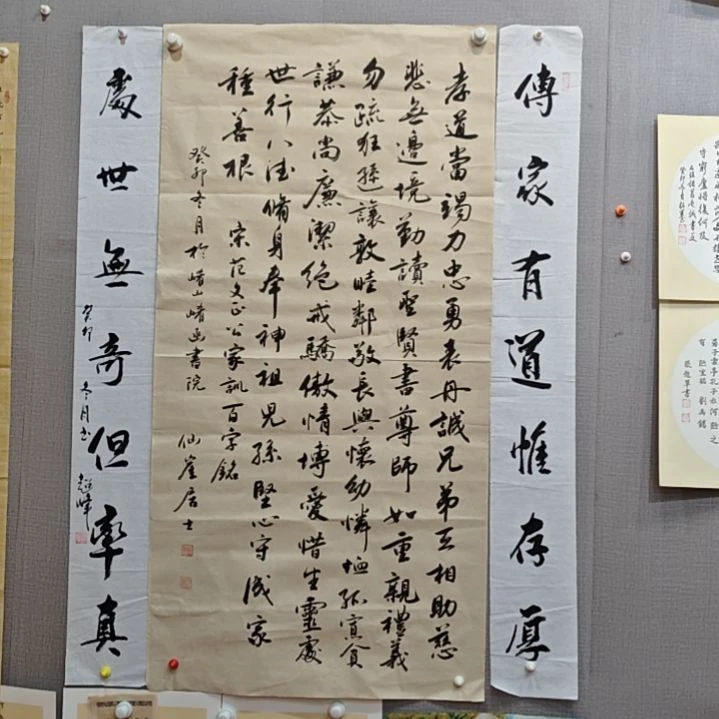 傳家有道惟存厚
孝道當竭力忠勇表丹誠兄弟互相助慈
悲無邊境勤讀聖賢書尊師如重親禮義
勿疏狂遜讓敦睦鄰敬長與懷幼憐恤孤寡貧
謙恭尚廉潔絕戒驕傲情博愛惜生靈處
世行八德脩身奉神祖兒孫堅心守成家
種善根 宋范文正公家訓百字銘
癸卯冬月於崤山崤函書院 仙崖居士
處世無奇但率真
癸卯冬月書 超峰
窮廬悔復何及
子雲亭孔子云何陋之
有 陋室銘 劉禹錫